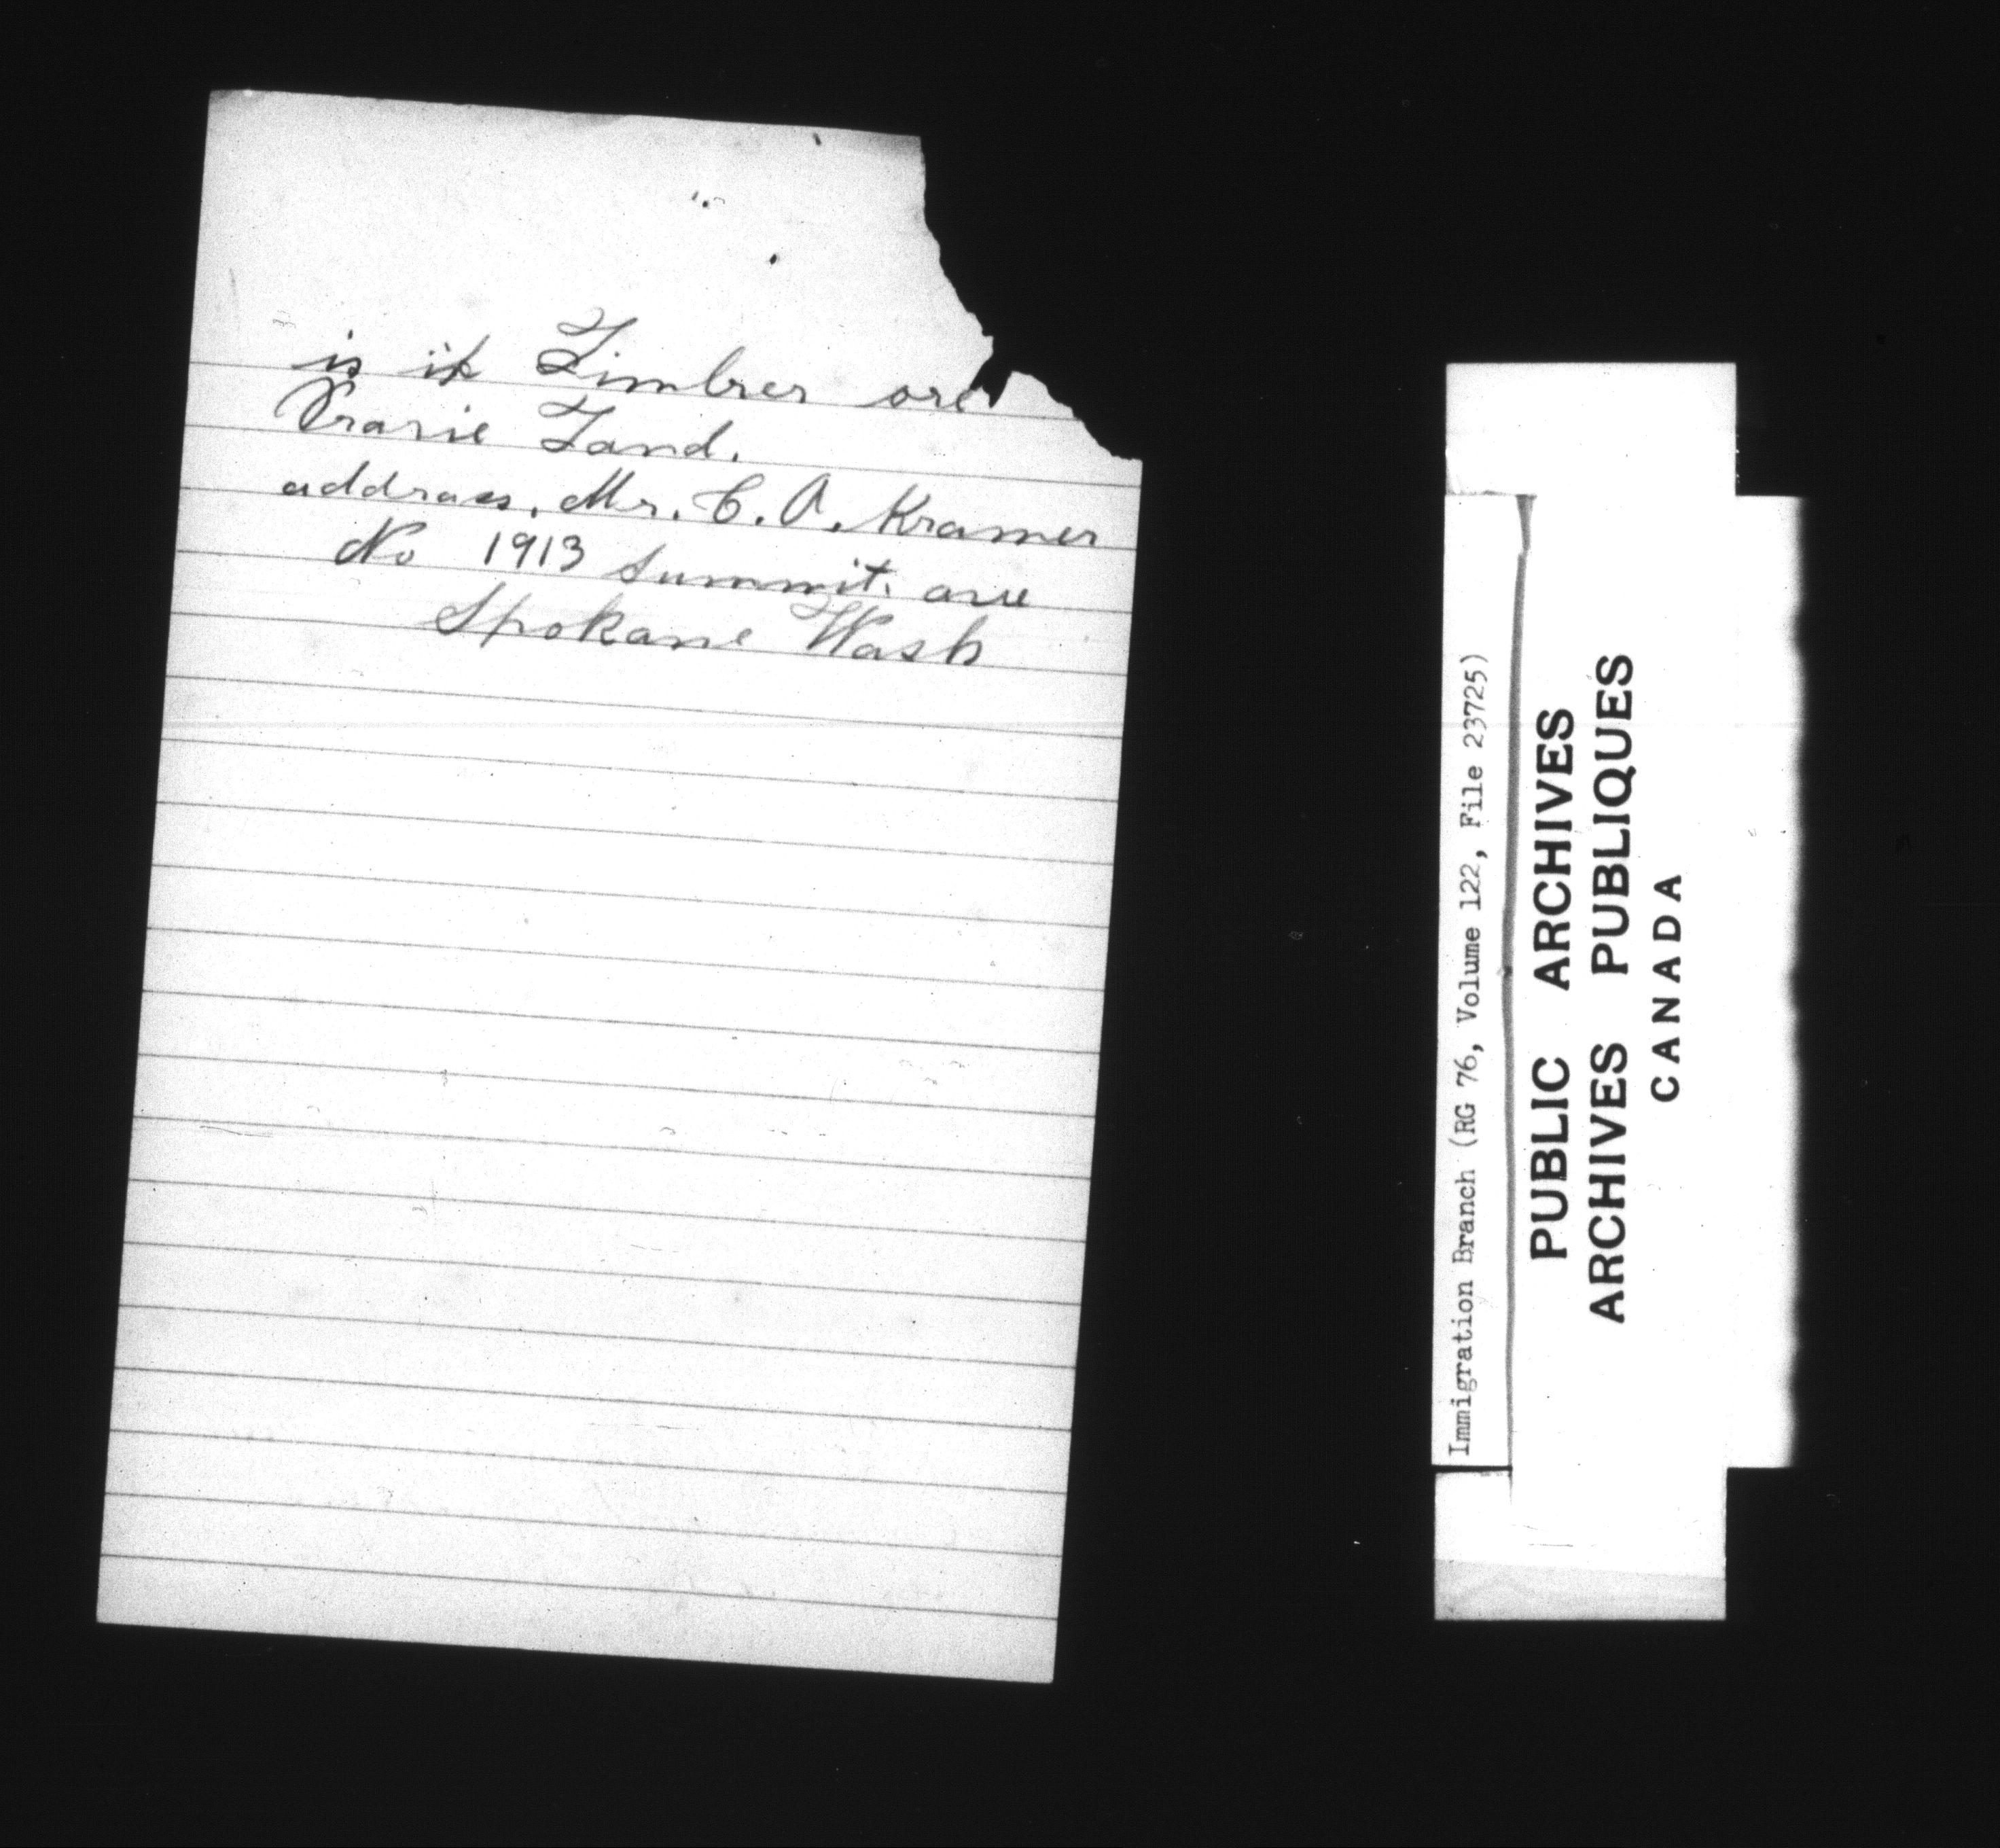 is it Timber ore
Prarie Land.
address. Mr. C. A. Kramer
No 1913 Summit. ave
Spokane Wash
Immigration Branch (RG 76, Volume 122, File 23725)
PUBLIC ARCHIVES
ARCHIVES PUBLIQUES
CANADA